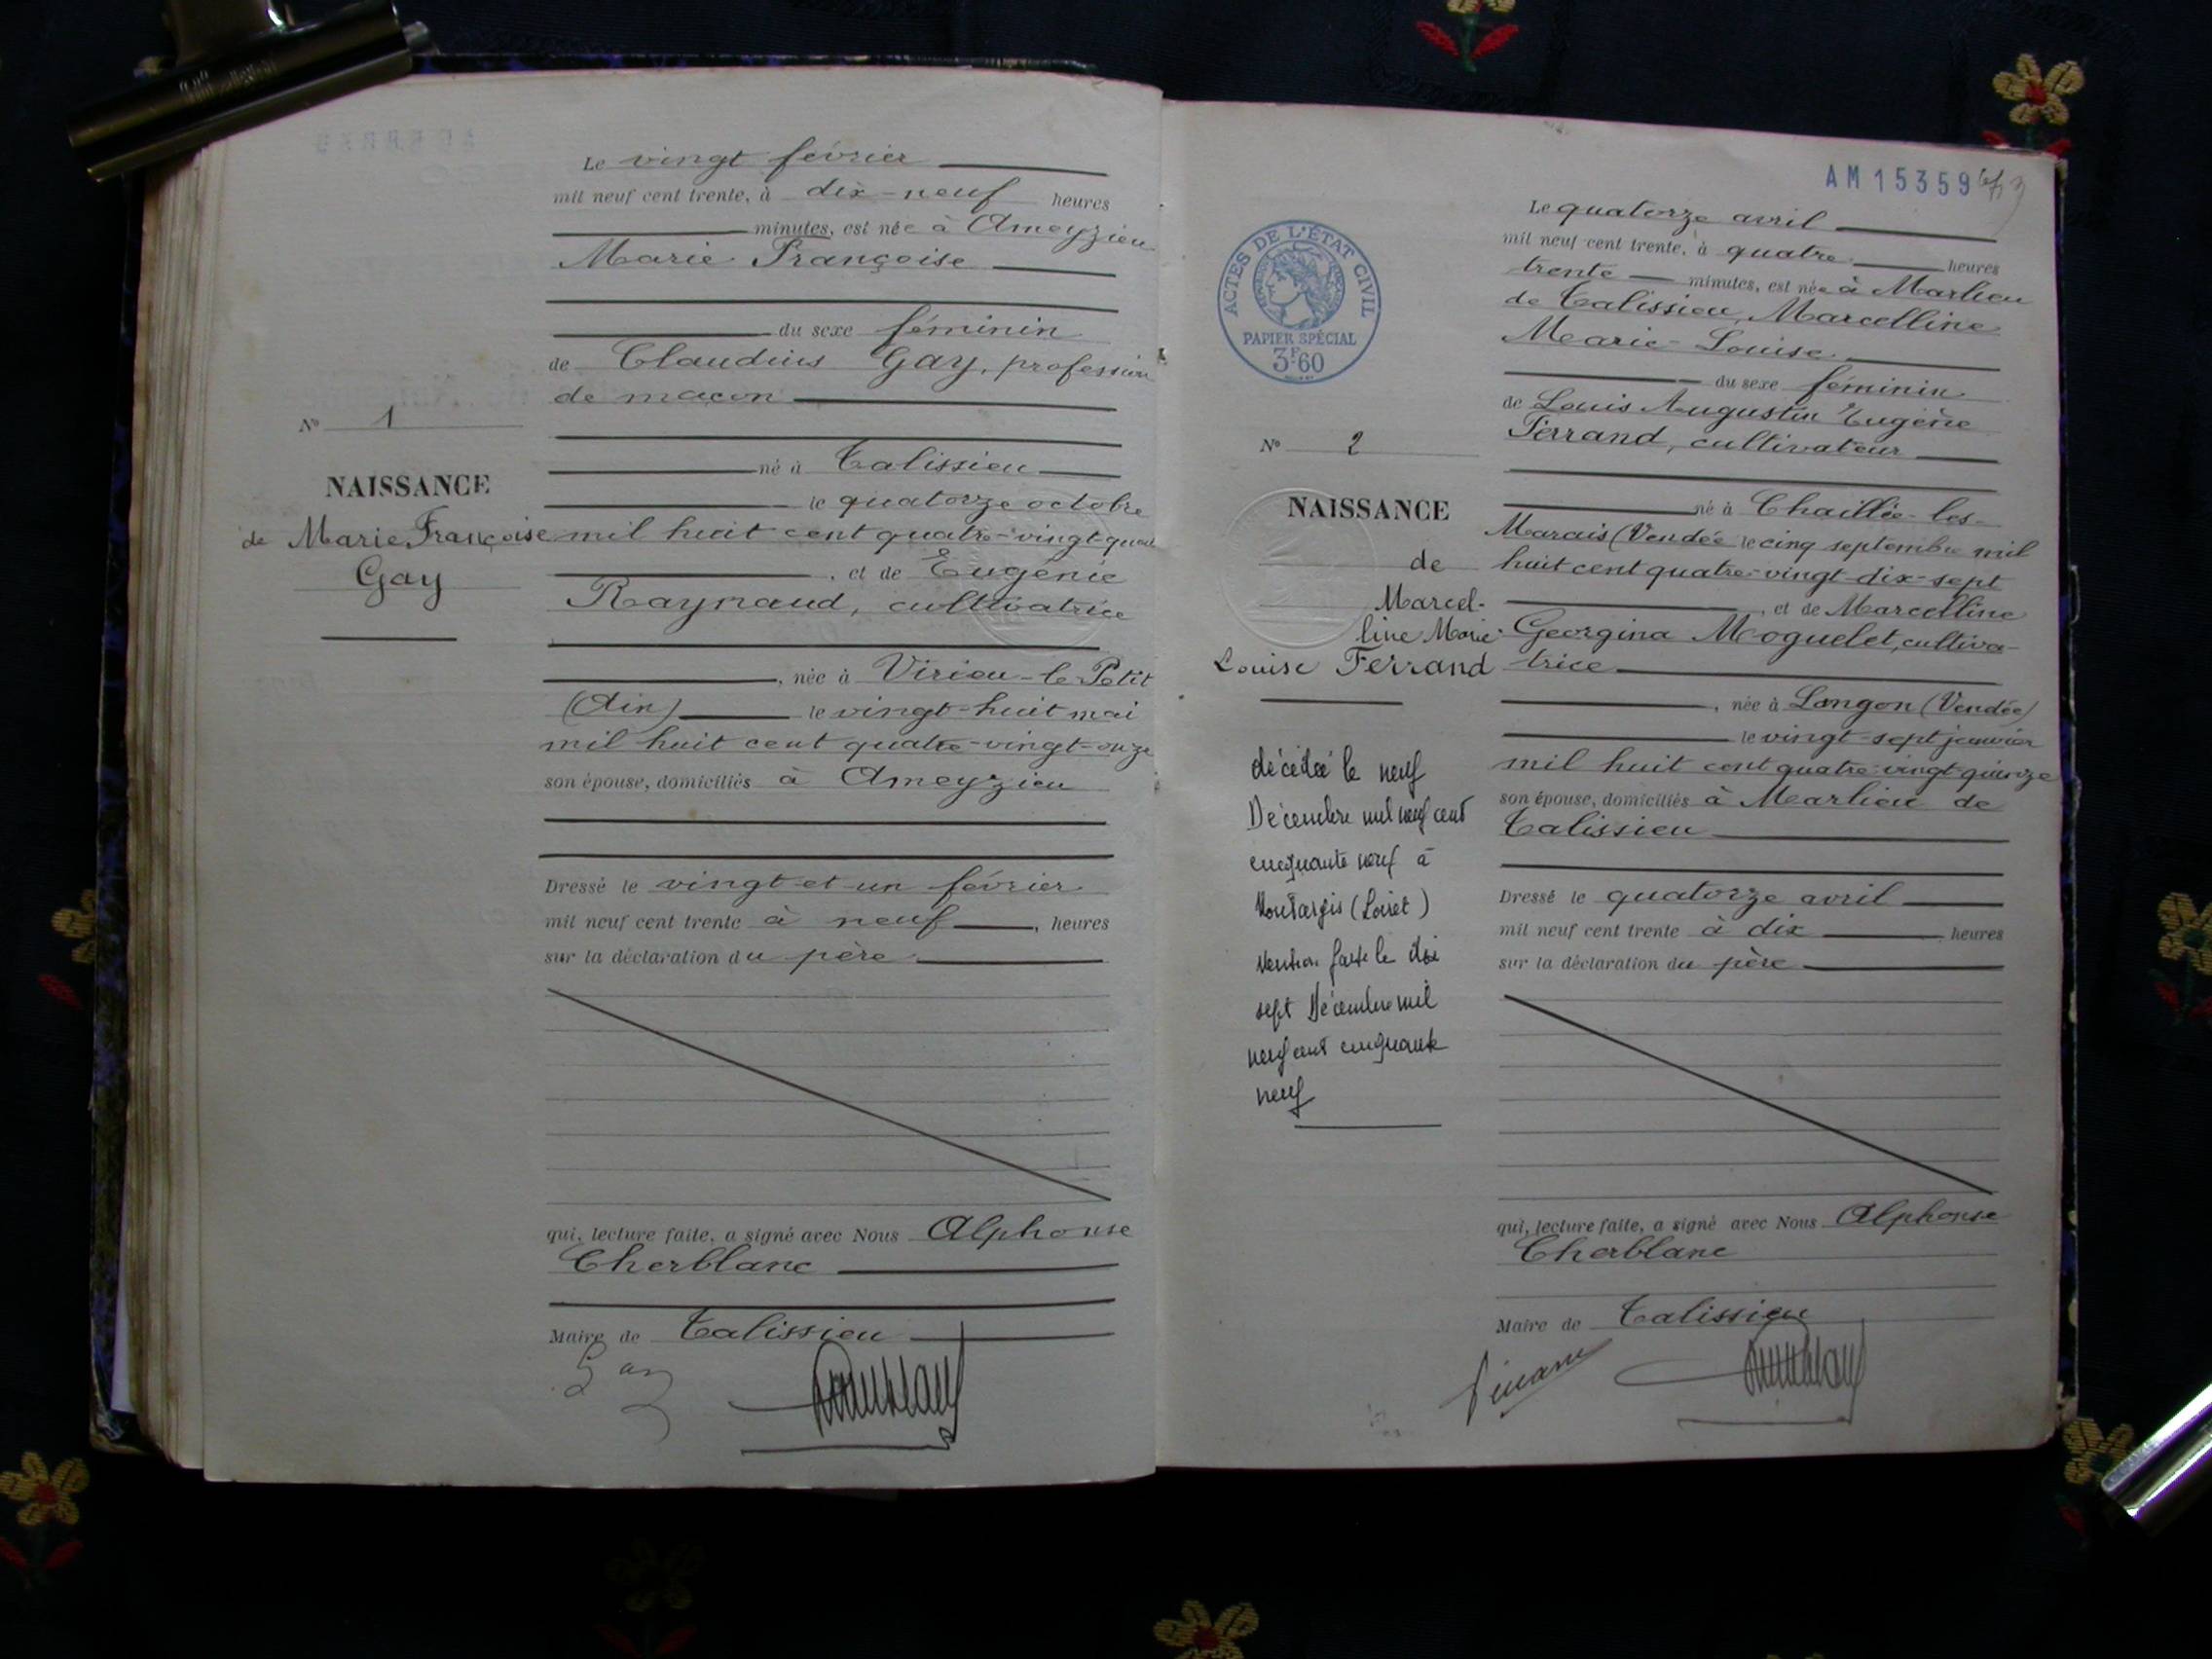 Le vingt février
mil neuf cent trente, à dix-neuf heures
minutes, est née à Ameyzieu
Marie Françoise
du sexe féminin
de Claudius Gay, profession
de maçon
né à Talissieu
le quatorze octobre
mil huit cent quatre-vingt-
, et de Eugénie
Raynaud, cultivatrice
, née à Virieu-le-Petit
(Ain) le vingt-huit mai
mil huit cent quatre-vingt-onze
son épouse, domiciliés à Ameyzieu
Dressé le vingt et un février
mil neuf cent trente à neuf, heures
sur la déclaration du père
qui, lecture faite, a signé avec Nous Alphonse
Cherblanc
Maire de Talissieu
Nº 1
NAISSANCE
de Marie Françoise
Gay
AM15359
ACTES DE L'ÉTAT CIVIL
PAPIER SPÉCIAL
3F60
Le quatorze avril
mil neuf cent trente, à quatre heures
trente minutes, est née à Marlieu
de Talissieu, Marcelline
Marie-Louise
du sexe féminin
de Louis Augustin Eugène
Ferrand, cultivateur
né à Chaillé-les-
Marais (Vendée le cinq septembre mil
huit cent quatre-vingt-dix-sept
, et de Marcelline
Georgina Moguelet, cultiva-
trice
, née à Langon (Vendée)
le vingt-sept janvier
mil huit cent quatre-vingt-quinze
son épouse, domiciliés à Marlieu de
Talissieu
Dressé le quatorze avril
mil neuf cent trente à dix heures
sur la déclaration du père
qui, lecture faite, a signé avec Nous Alphonse
Cherblanc
Maire de Talissieu
Nº 2
NAISSANCE
de
Marcel-
line Marie-
Louise Ferrand
décédée le neuf
Décembre mil neuf cent
cinquante neuf à
Montargis (Loiret)
Mention faite le dix
sept Décembre mil
neuf cent cinquante
neuf